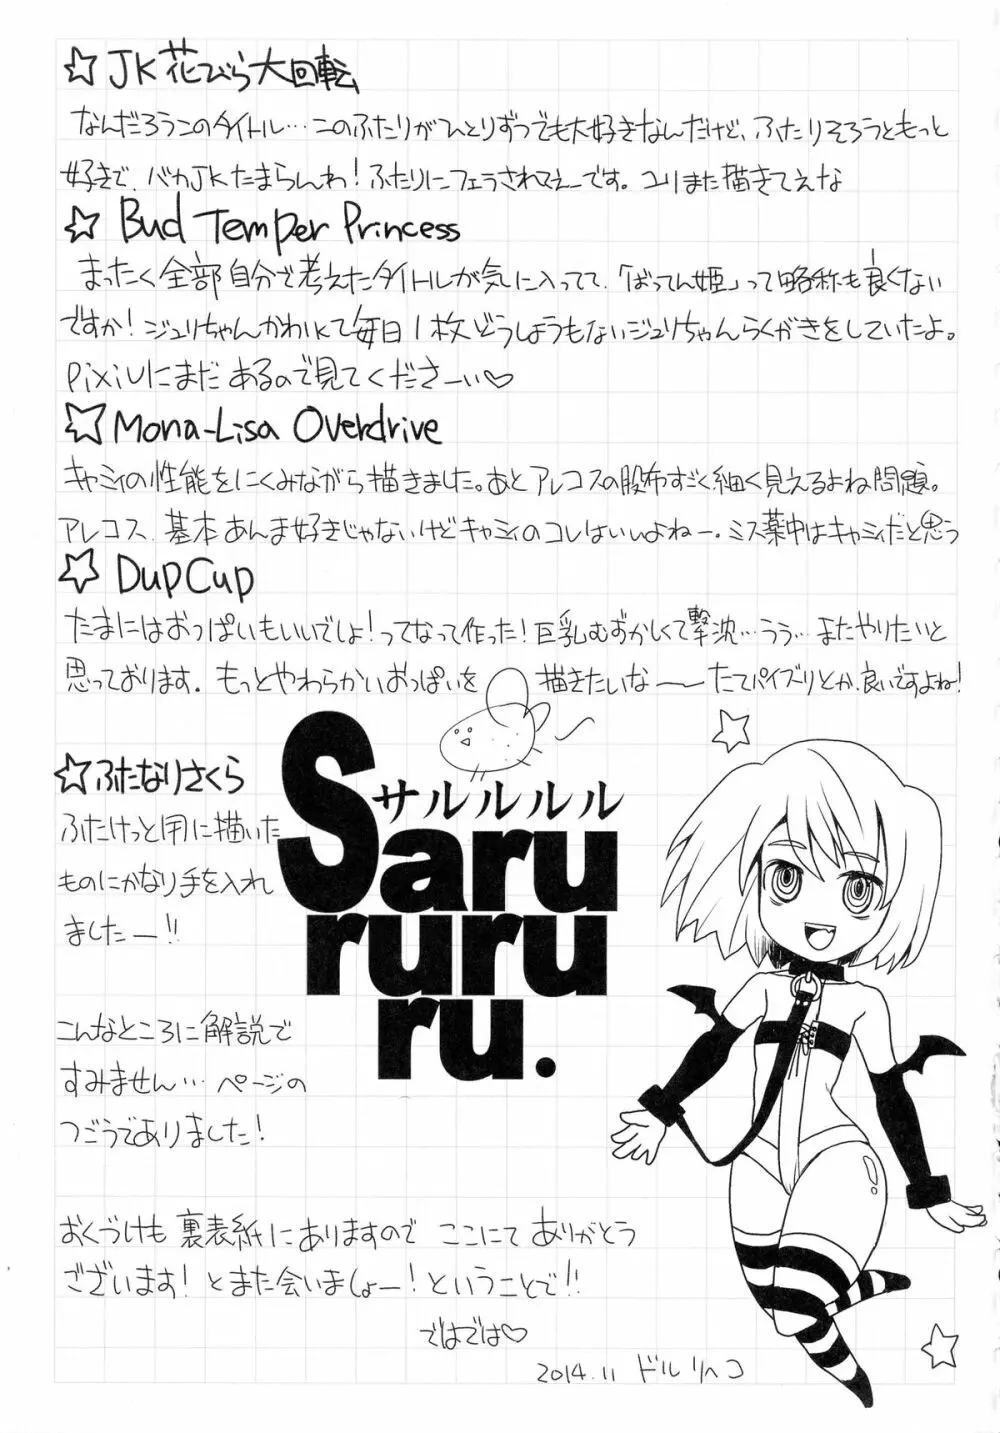 ☆JK花びら大回転
なんだろうこのタイトル…このふたりがひとりずつでも大好きなんだけど、ふたりそろうともっと
好きで、バカJKたまらんわ!ふたりにフェラされてえーです。ユリまた描きてえな
☆Bud Temper Princess
まったく全部自分で考えたタイトルが気に入ってて、「ばってん姫」って略称も良くない
ですか!ジュリちゃんかわいくて毎日1枚どうしようもないジュリちゃんらくがきをしていたよ。
pixivにまだあるので見てくださーい♡
☆Mona-Lisa Overdrive
キャミィの性能をにくみながら描きました。あとアレコスの股布すごく細く見えるよね問題。
アレコス、基本あんま好きじゃないけどキャミィのコレはいいよねー。ミス薬中はキャミィだと思う
☆DupCup
たまにはおっぱいもいいでしょ!ってなって作った!巨乳むずかしくて撃沈…うう…またやりたいと
思っております。もっとやわらかいおっぱいを描きたいな〜たてパイズリとか、良いですよね!
☆ふたなりさくら
ふたけっと用に描いた
ものにかなり手を入れ
ましたー!!
サルルルル
Saru
ruru
ru.
こんなところに解説で
すみません…ページの
つごうでありました!
おくづけも裏表紙にありますのでここにてありがとう
ございます!とまた会いましょー!ということで!!
ではでは♡
2014.11 ドルリヘコ